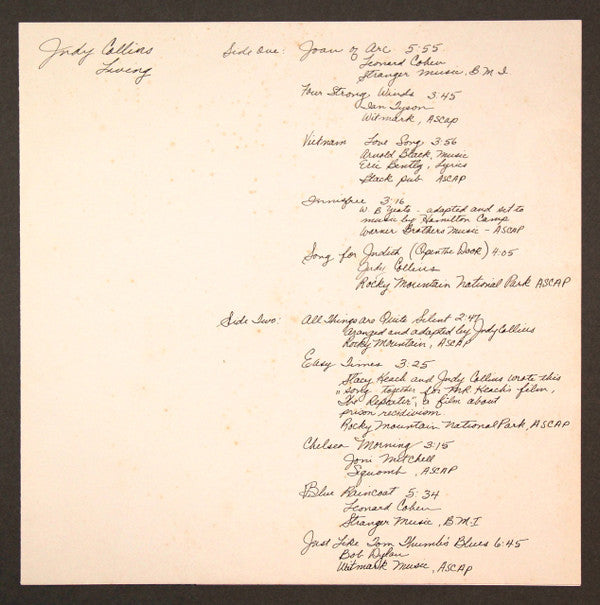 Judy Collins
Living
Side One: Joan of Arc 5:55
Leonard Cohen
Stranger Music, B.M.I
Four Strong Winds 3:45
Ian Tyson
Witmark, ASCAP
Vietnam Love Song 3:56
Arnold Black, Music
Eric Bentley, Lyrics
Black pub ASCAP
Innisfree 3:16
W B Yeats - adapted and set to
music by Hamilton Camp
Warner Brothers Music - ASCAP
Song for Judith (Open the Door) 4:05
Judy Collins
Rocky Mountain National Park ASCAP
Side Two: All Things are Quite Silent 2:47
arranged and adapted by Judy Collins
Rocky Mountain, ASCAP
Easy Times 3:25
Stacy Keach and Judy Collins wrote this
song together for Mr. Keach's film,
"The Repeater", a film about
prison recidivism
Rocky Mountain National Park, ASCAP
Chelsea Morning 3:15
Joni Mitchell
Siquomb, ASCAP
Blue Raincoat 5:34
Leonard Cohen
Stranger Music, B.M.I
Just Like Tom Thumb's Blues 6:45
Bob Dylan
Witmark Music, ASCAP